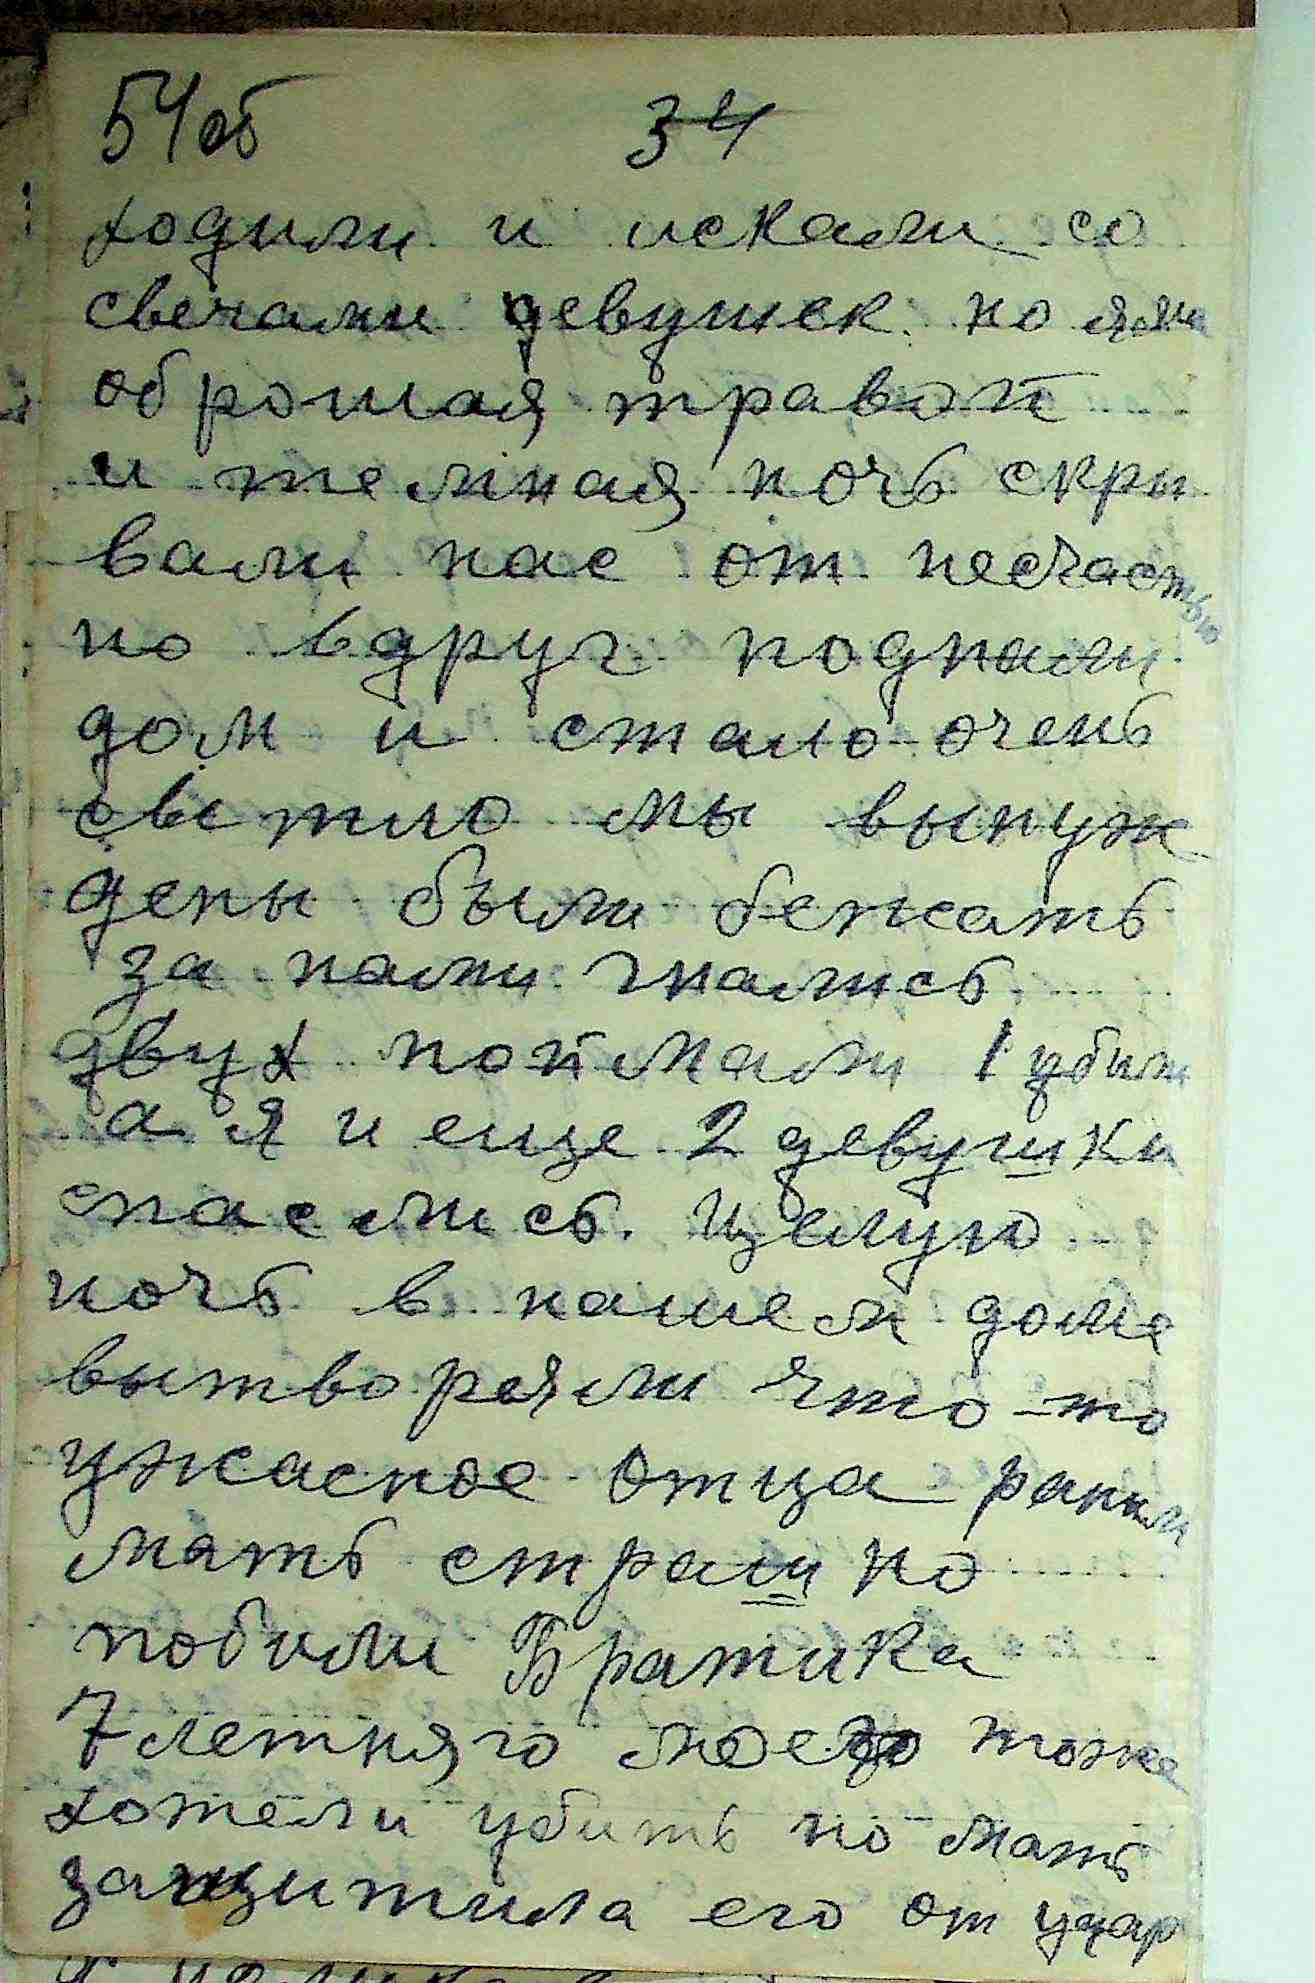 54об 34
ходили и искали со
свечами девушек. но яма
оброшая травой
и темная ночь скри
вали нас от несчастью
но вдруг подпали
дом и стало очень
светло мы вынуж
дены были бежать
за нами гнались
двух поймали 1 убили
а я и еще 2 девушки
спаслись. Целую
ночь в нашем доме
вытворяли что-то
ужасное отца ранили
мать страшно
побили Братика
7 летняго моего тоже
хотели убить но мать
защитила его от удар